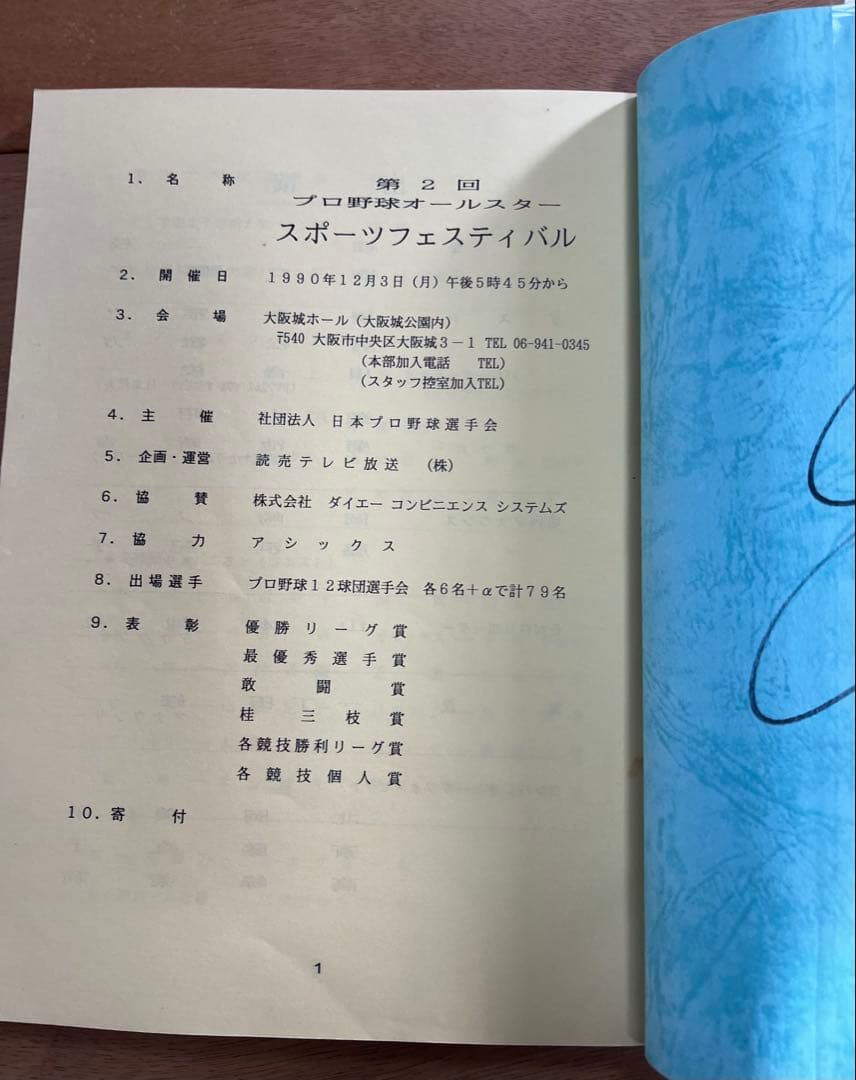 1. 名称 第2回
プロ野球オールスター
スポーツフェスティバル
2. 開催日 1990年12月3日(月)午後5時45分から
3. 会場 大阪城ホール(大阪城公園内)
〒540 大阪市中央区大阪城3-1 TEL 06-941-0345
(本部加入電話 TEL)
(スタッフ控室加入TEL)
4. 主催 社団法人 日本プロ野球選手会
5. 企画・運営 読売テレビ放送 (株)
6. 協賛 株式会社 ダイエー コンビニエンス システムズ
7. 協力 アシックス
8. 出場選手 プロ野球12球団選手会 各6名+αで計79名
9. 表彰 優勝リーグ賞
最優秀選手賞
敢闘賞
桂三枝賞
各競技勝利リーグ賞
各競技個人賞
10. 寄付
1